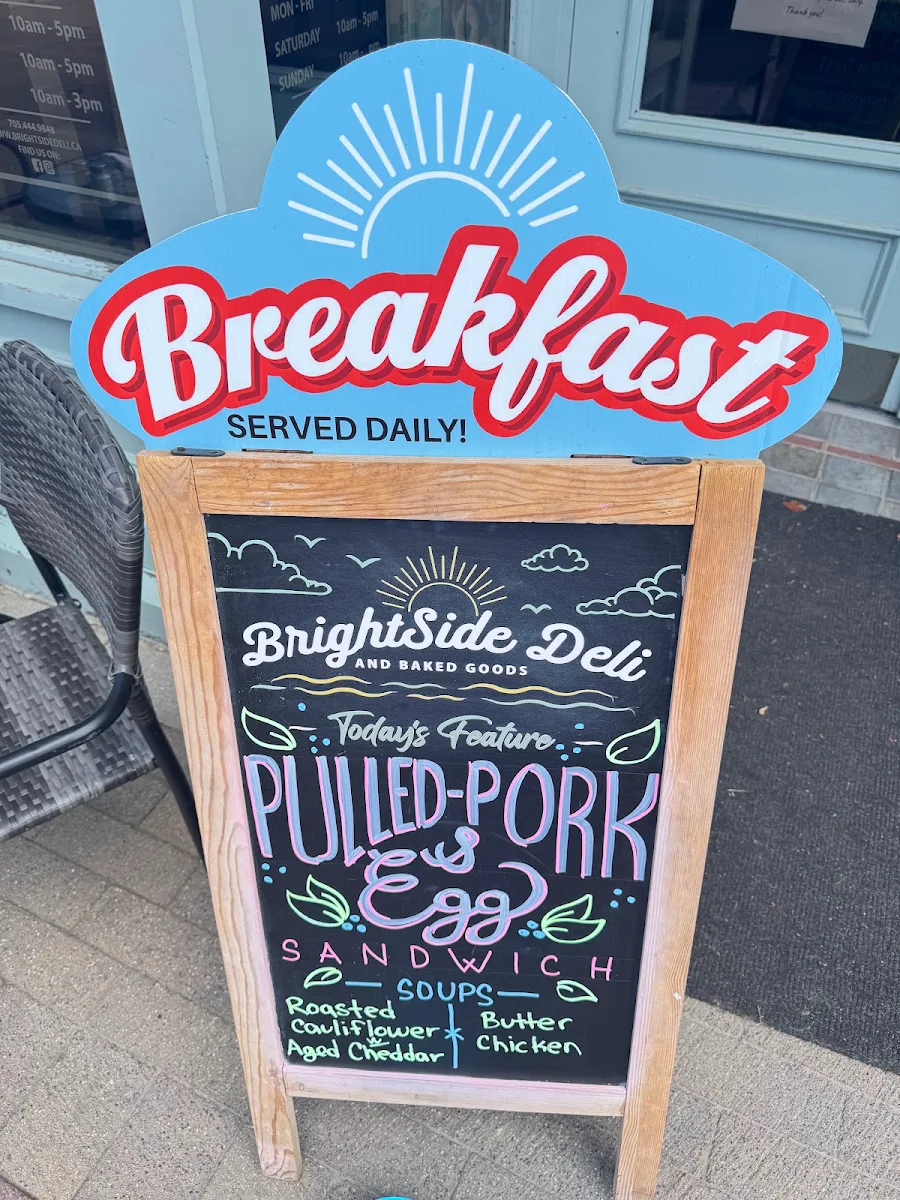 10am - 5pm
10am - 5pm
10am - 3pm
705.444.9848
WWW.BRIGHTSIDEDELI.CA
FIND US ON:
MON - FRI
10am - 5pm
SATURDAY
10am - 5pm
SUNDAY
Thank you!
Breakfast
SERVED DAILY!
BrightSide Deli
AND BAKED GOODS
Today's Feature
PULLED-PORK
&
Egg
SANDWICH
SOUPS
Roasted
Cauliflower
w
Aged Cheddar
Butter
Chicken